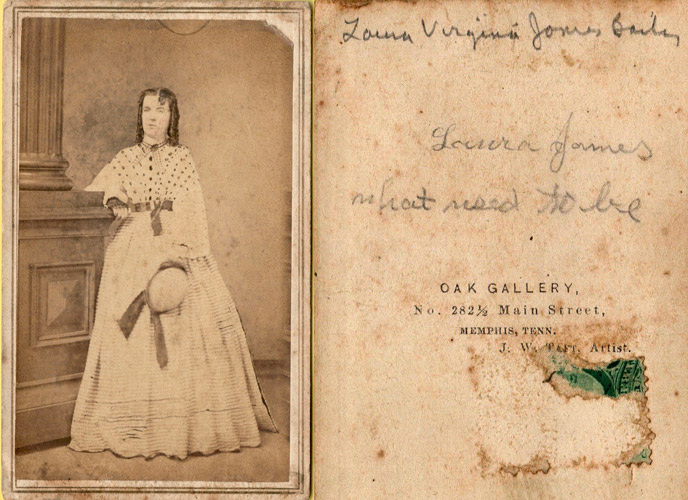 Laura Virginia James Bailey
Laura James
what used to be
OAK GALLERY,
No. 282½ Main Street,
MEMPHIS, TENN.
J. W. TAFT, Artist.